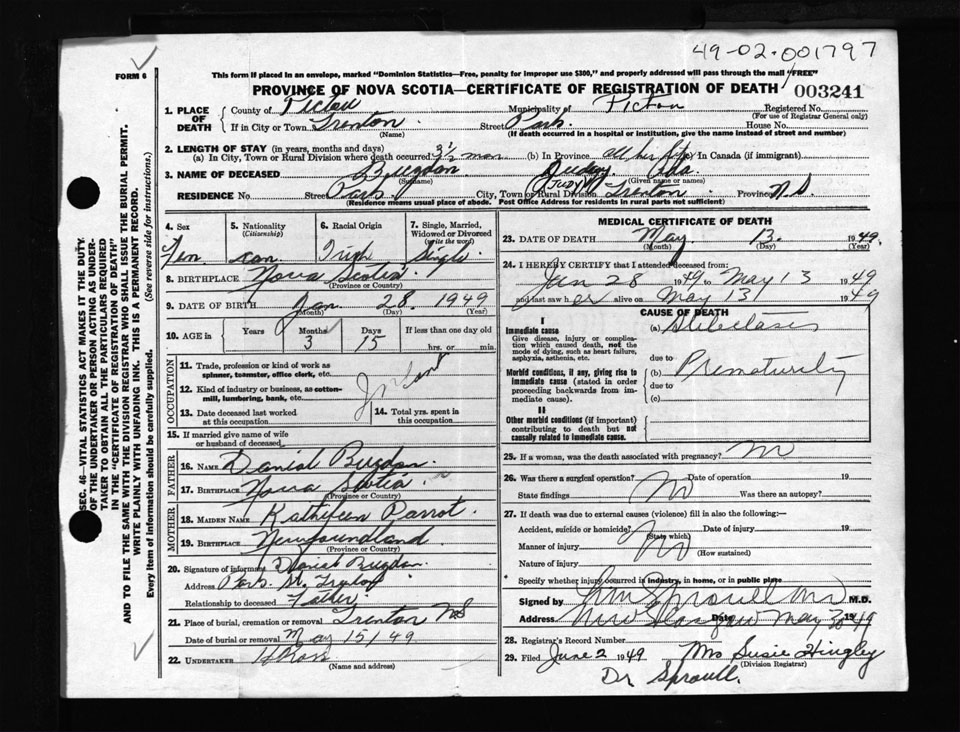 49-02-001797
FORM 6
This form if placed in an envelope, marked "Dominion Statistics—Free, penalty for improper use $300," and properly addressed will pass through the mail "FREE"
PROVINCE OF NOVA SCOTIA—CERTIFICATE OF REGISTRATION OF DEATH
003241
1. PLACE OF DEATH
County of Pictou Municipality of Pictou Registered No.
(For use of Registrar General only)
If in City or Town Trenton Street Park House No.
(Name) (If death occurred in a hospital or institution, give the name instead of street and number)
2. LENGTH OF STAY (in years, months and days)
(a) In City, Town or Rural Division where death occurred 3½ mon (b) In Province all her life (c) In Canada (if immigrant)
3. NAME OF DECEASED Bugdon Judy
(Surname) (JUDY) (Given name or names)
RESIDENCE No. Street Park City, Town or Rural Division Trenton Province N.S.
(Residence means usual place of abode. Post Office Address for residents in rural parts not sufficient)
SEC. 46—VITAL STATISTICS ACT MAKES IT THE DUTY
OF THE UNDERTAKER OR PERSON ACTING AS UNDER-
TAKER TO OBTAIN ALL THE PARTICULARS REQUIRED
IN THE "CERTIFICATE OF REGISTRATION OF DEATH"
AND TO FILE THE SAME WITH THE DIVISION REGISTRAR WHO SHALL ISSUE THE BURIAL PERMIT.
WRITE PLAINLY WITH UNFADING INK. THIS IS A PERMANENT RECORD.
Every item of information should be carefully supplied. (See reverse side for instructions.)
4. Sex
Fem
5. Nationality
(Citizenship)
Can
6. Racial Origin
Irish
7. Single, Married,
Widowed or Divorced
(write the word)
Single
8. BIRTHPLACE Nova Scotia
(Province or Country)
9. DATE OF BIRTH Jan. 28 1949
(Month) (Day) (Year)
10. AGE in
Years Months Days If less than one day old
3 15 hrs. or min.
OCCUPATION
11. Trade, profession or kind of work as
spinner, teamster, office clerk, etc.
Infant
12. Kind of industry or business, as cotton-
mill, lumbering, bank, etc.
13. Date deceased last worked
at this occupation
14. Total yrs. spent in
this occupation
15. If married give name of wife
or husband of deceased
FATHER
16. NAME Daniel Bugdon.
17. BIRTHPLACE Nova Scotia
(Province or Country)
MOTHER
18. MAIDEN NAME Kathleen Parrot.
19. BIRTHPLACE Newfoundland
(Province or Country)
20. Signature of informant Daniel Bugdon.
Address Park St. Trenton
Relationship to deceased Father
21. Place of burial, cremation or removal Trenton NS
Date of burial or removal May 15/49
22. UNDERTAKER H Ross
(Name and address)
MEDICAL CERTIFICATE OF DEATH
23. DATE OF DEATH May 13. 1949
(Month) (Day)
24. I HEREBY CERTIFY that I attended deceased from:
Jan 28 1949 to May 13 1949
and last saw her alive on May 13 1949
CAUSE OF DEATH
I
Immediate cause
Give disease, injury or complica-
tion which caused death, not the
mode of dying, such as heart failure,
asphyxia, asthenia, etc.
(a) Atelectasis
due to
Morbid conditions, if any, giving rise to
immediate cause (stated in order
proceeding backwards from im-
mediate cause).
(b) Prematurity
due to
(c)
II
Other morbid conditions (if important)
contributing to death but not
causally related to immediate cause.
25. If a woman, was the death associated with pregnancy? No
26. Was there a surgical operation? No Date of operation 19
State findings Was there an autopsy?
27. If death was due to external causes (violence) fill in also the following:—
Accident, suicide or homicide? No Date of injury 19
(State which)
Manner of injury
(How sustained)
Nature of injury
Specify whether injury occurred in industry, in home, or in public place
Signed by Sproull MD M.D.
Address New Glasgow Date May 30 1949
28. Registrar's Record Number
29. Filed June 2 1949 Mrs Susie Hingley
(Division Registrar)
Dr Sproull.